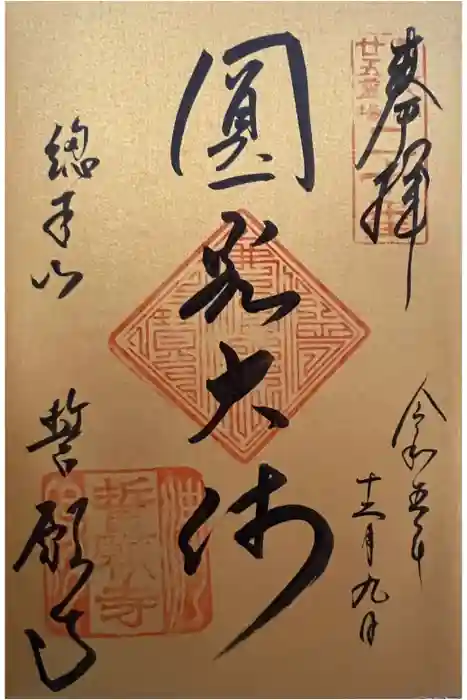 奉拝
廿五霊場
令和五年
十二月九日
圓光大師
総本山
誓願寺
誓願寺